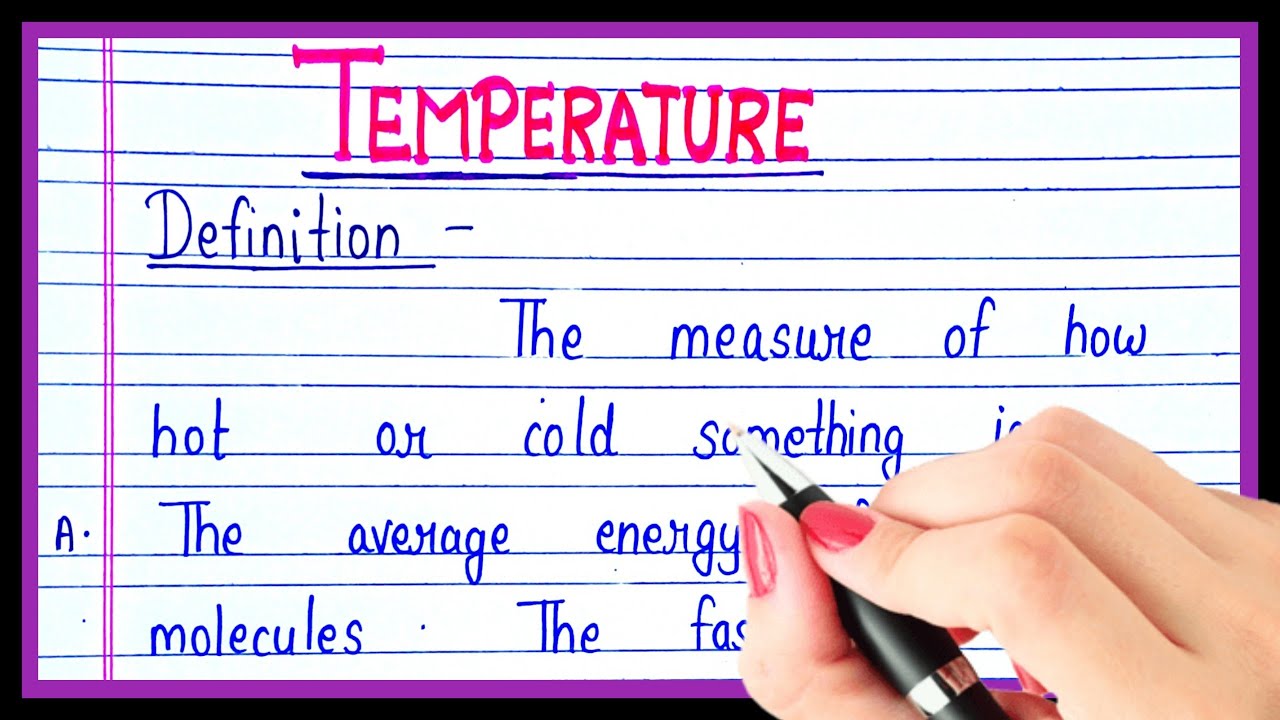 TEMPERATURE
Definition -
The measure of how
hot or cold something
A. The average energy
molecules. The